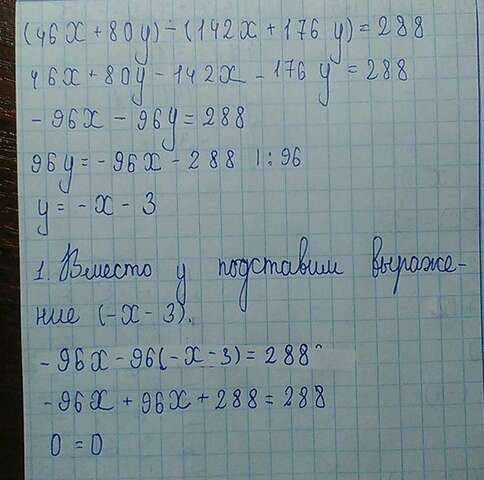 (46x + 80y) - (142x + 176y) = 288
46x + 80y - 142x - 176y = 288
- 96x - 96y = 288
96y = - 96x - 288 | : 96
y = - x - 3
1. Вместо y подставим выраже-
ние (-x - 3).
- 96x - 96(-x - 3) = 288
- 96x + 96x + 288 = 288
0 = 0